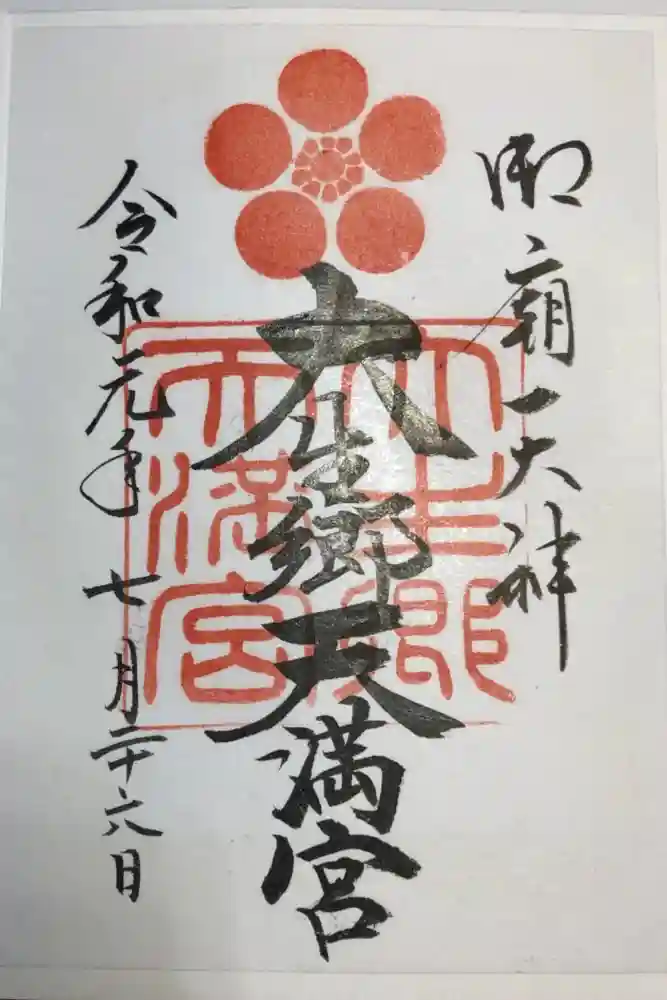 御廟天神
大生郷天満宮
令和元年 七月二十六日
大生郷
天満宮